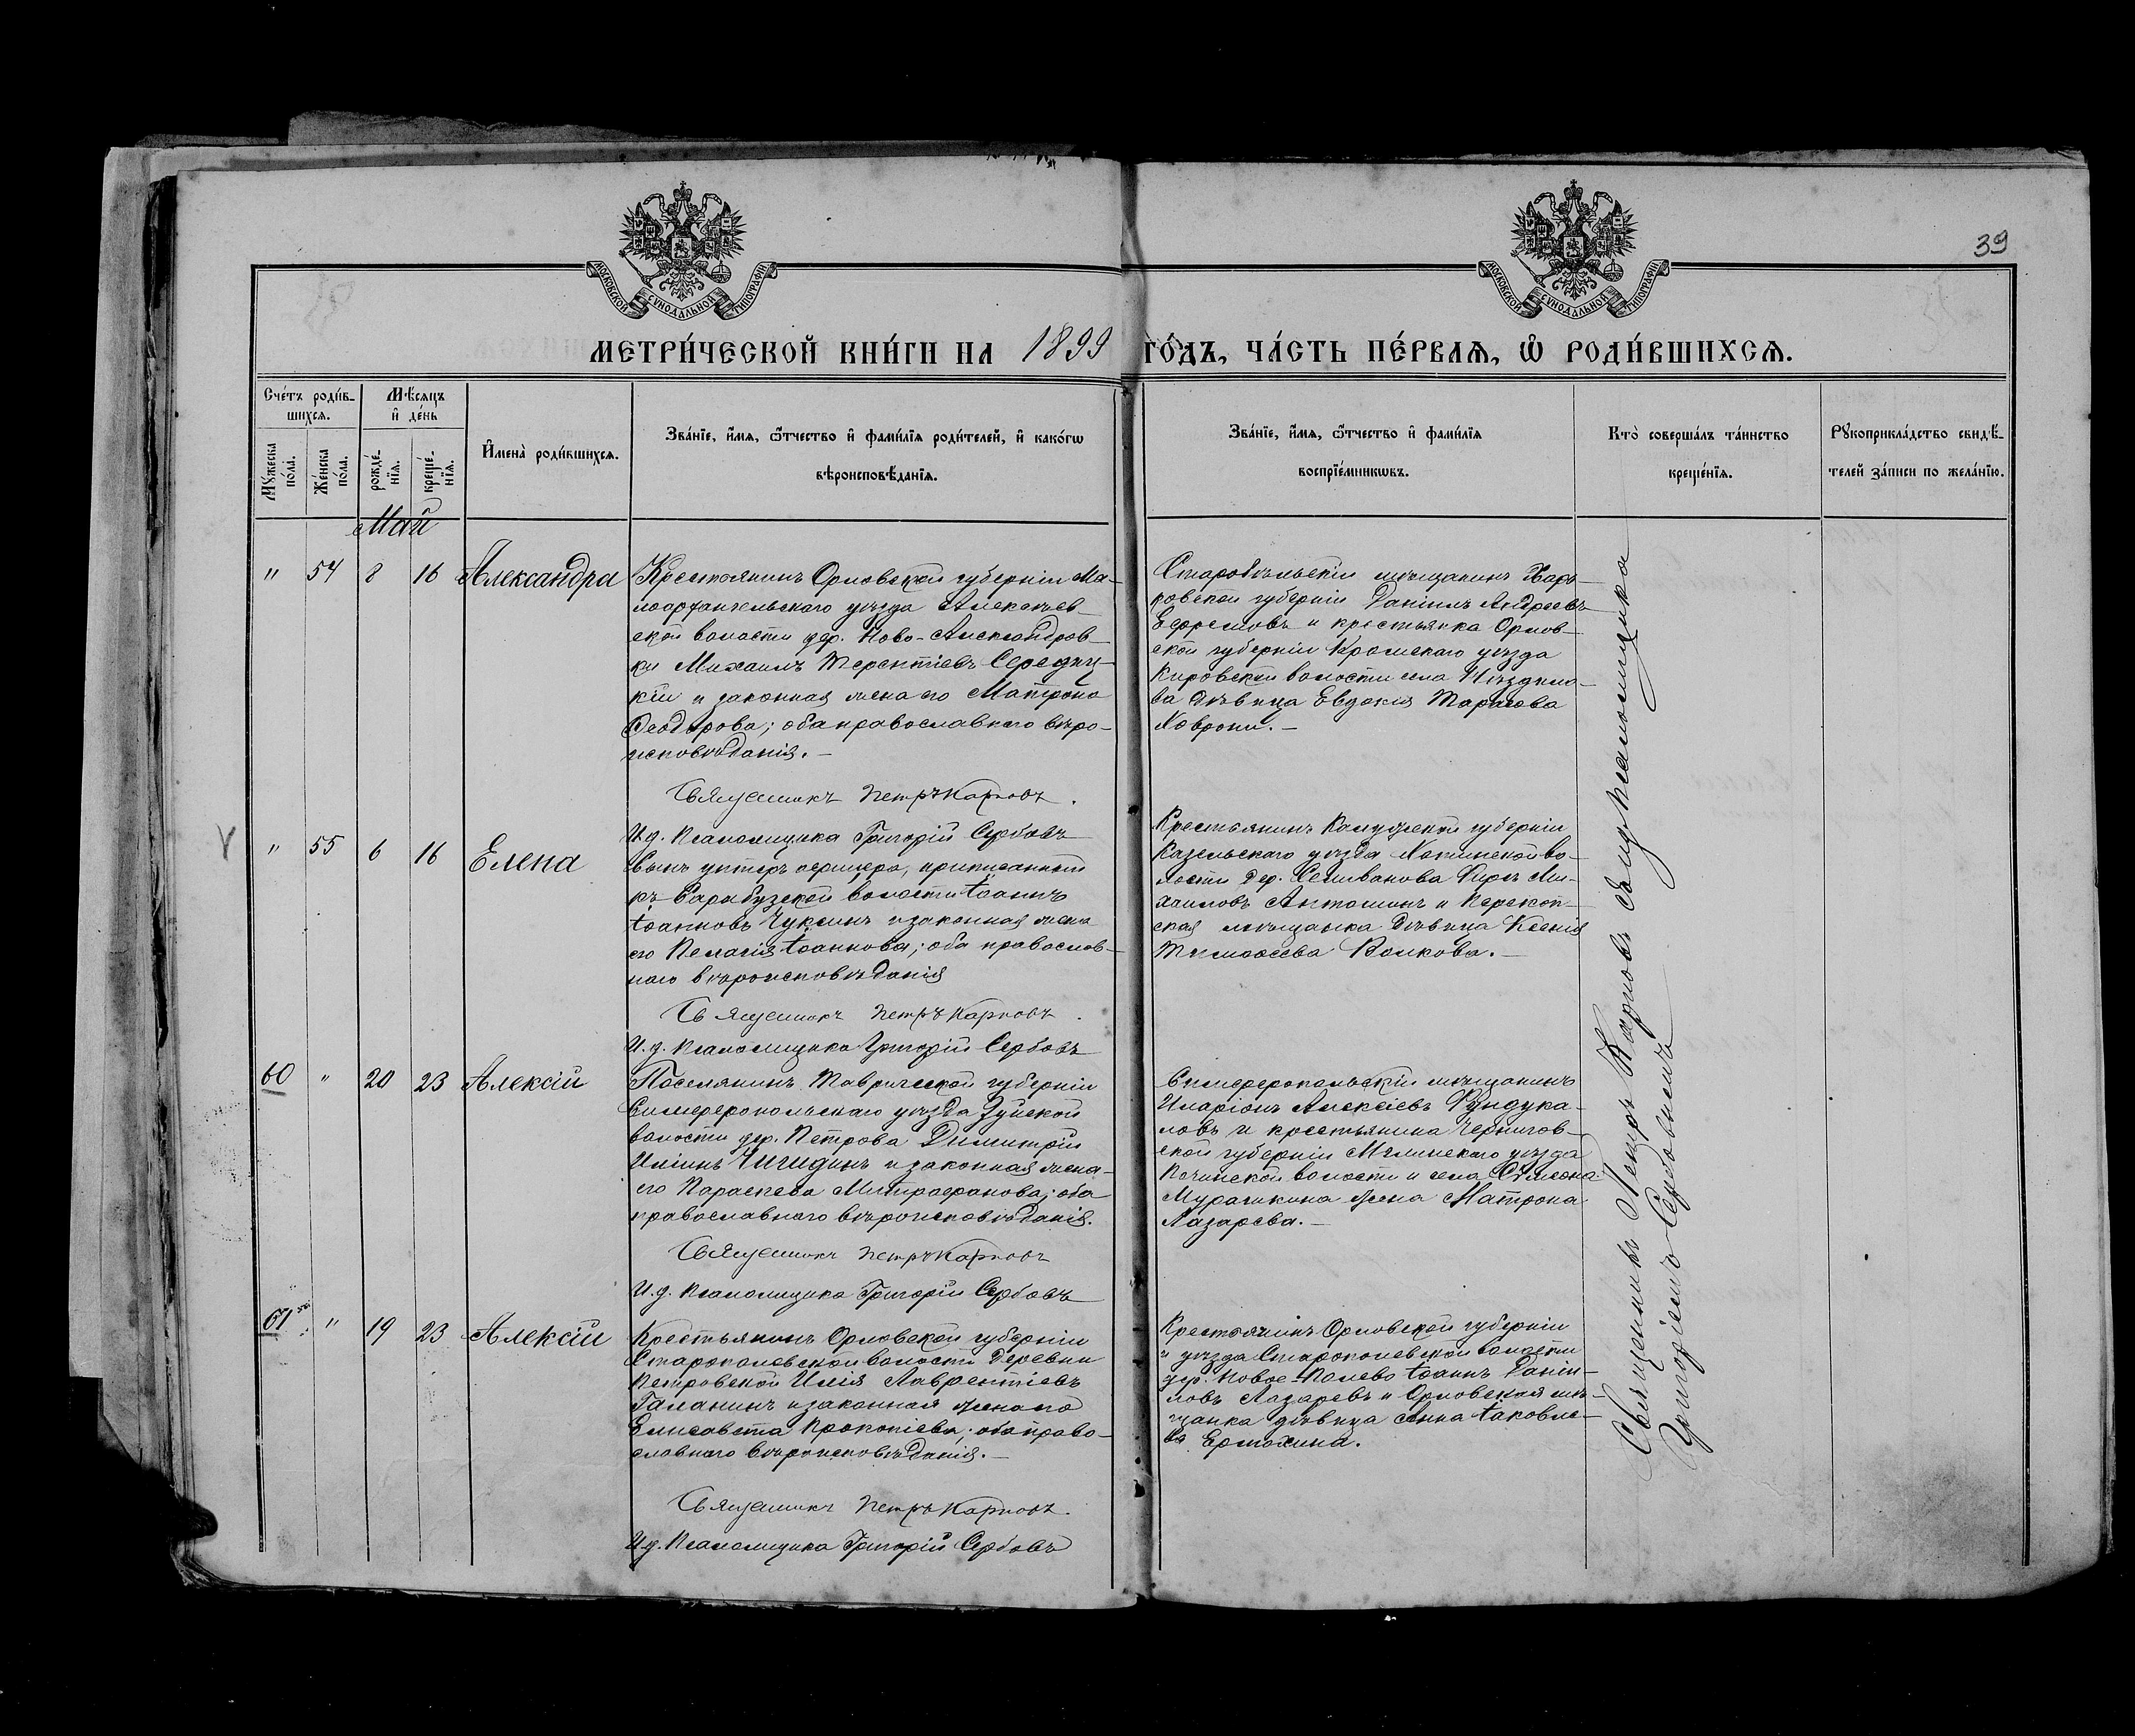 39
МОСКОВСКОЙ СѴНОДАЛЬНОЙ ТИПОГРАФІИ
МОСКОВСКОЙ СѴНОДАЛЬНОЙ ТИПОГРАФІИ
МЕТРИ́ЧЕСКОЙ КНИ́ГИ НА 1899 ГО́ДЪ, ЧА́СТЬ ПЕ́РВАЯ, Ѽ РОДИ́ВШИХСЯ.
Сче́тъ роди́в-
шихся.
Мꙋжеска по́ла.
Же́нска по́ла.
Мѣ́сяцъ
и̂ де́нь
рожде́-
нїя.
креще́-
нїя.
И̂мена̀ роди́вшихся.
Зва́нїе, и̂́мя, ѻ҆́тчество и̂ фами́лїя роди́телей, и̂ како́гѡ
вѣроисповѣ́данїя.
Зва́нїе, и̂́мя, ѻ҆́тчество и̂ фами́лїя
воспрїе́мникѡвъ.
Кто̀ соверша́лъ та́инство
креще́нїя.
Рꙋкоприкла́дство свидѣ́-
телей за́писи по жела́нїю.
Май
" 54 8 16 Александра
Крестьянинъ Орловской губерніи Ма-
лоархангельскаго уѣзда Алексѣев-
ской волости дер. Ново-Александров-
ки Михаилъ Терентіевъ Середиц-
кій и законная жена его Матрона
Ѳеодорова; оба православнаго вѣро-
исповѣданія.—
Священникъ Петръ Карповъ.
И.д. Псаломщика Григорій Сербовъ
Старобѣльскій мѣщанинъ Харь-
ковской губерніи Даніилъ Андреевъ
Ефремовъ и крестьянка Орлов-
ской губерніи Кромскаго уѣзда
Кировской волости села
дѣвица Евдокія Тарасова
V " 55 6 16 Елена
унтеръ офицера, приписанный
къ Сарабузской волости Іоаннъ
Іоанновъ Чуклинъ и законная жена
его Пелагія Іоаннова; оба православ-
наго вѣроисповѣданія
Священникъ Петръ Карповъ.
И.д. Псаломщика Григорій Сербовъ
Крестьянинъ Калужской губерніи
Казельскаго уѣзда во-
лости дер. Селиванова Ми-
хаиловъ Антошинъ и Перекоп-
ская мѣщанка дѣвица Ксенія
Тимоѳеева Волкова.—
60 " 20 23 Алексій
Поселянинъ Таврической губерніи
Симферопольскаго уѣзда Зуйской
волости дер. Петрова Димитрій
Иліинъ Чигидинъ и законная жена
его Параскева Митрофанова; оба
православнаго вѣроисповѣданія.
Священникъ Петръ Карповъ
И.д. Псаломщика Григорій Сербовъ
Симферопольскій мѣщанинъ
Иларіонъ Алексіевъ Рундука-
ловъ и крестьянина Чернигов-
ской губерніи Мглинскаго уѣзда
волости и села Сѵмеона
Мурашкина жена Матрона
Лазарева.—
61 " 19 23 Алексій
Крестьянинъ Орловской губерніи
Старополевской волости деревни
Петровской Илія Лаврентіевъ
Галанинъ и законная жена его
Елисавета Прокопіева; оба право-
славнаго вѣроисповѣданія.—
Священникъ Петръ Карповъ.
И.д. Псаломщика Григорій Сербовъ
Крестьянинъ Орловской губерніи
и уѣзда Старополевской волости
дер. Новое-Полево Іоаннъ Даніи-
ловъ Лазаревъ и Орловская мѣ-
щанка дѣвица Анна Іаковле-
ва Ермохина.
Священникъ Петръ Карповъ съ и.д. псаломщика
Григоріемъ Сербовымъ